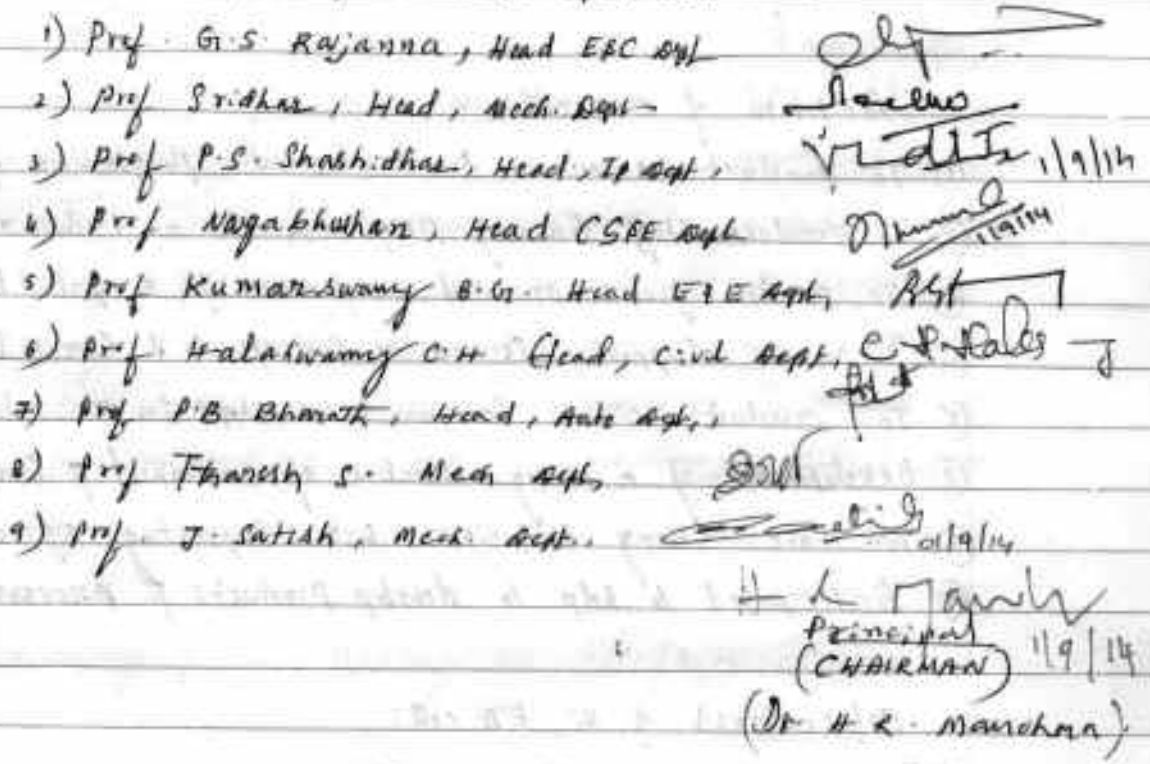 1) Prof. G.S. Rajanna, Head E&C Dept
2) Prof Sridhar, Head, Mech. Dept
3) Prof P.S. Shashidhar, Head, IP Dept, 1/9/14
4) Prof Nagabhushan, Head CS&E Dept 1/9/14
5) Prof Kumarswamy B.G. Head E&E Dept,
6) Prof Halaswamy C.H Head, Civil Dept,
7) Prof P.B. Bharath, Head, Auto Dept,
8) Prof Tharesh S. Mech Dept,
9) Prof J. Satish, Mech Dept. 01/9/14
Principal
(CHAIRMAN) 1/9/14
(Dr H R. Manohara)